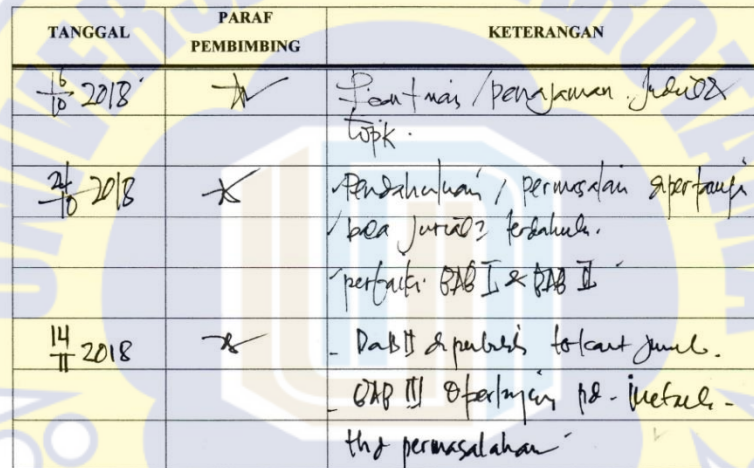 TANGGAL PARAF PEMBIMBING KETERANGAN
16/10 2018 / penajaman Judul &
topik.
24/10 2018 Pendahuluan / permasalahan dipertajam
/ baca jurnal2 terdahulu.
perbaiki BAB I & BAB II
14/11 2018 - BAB II diperbaiki
- BAB III dipertajam pd.
thd permasalahan